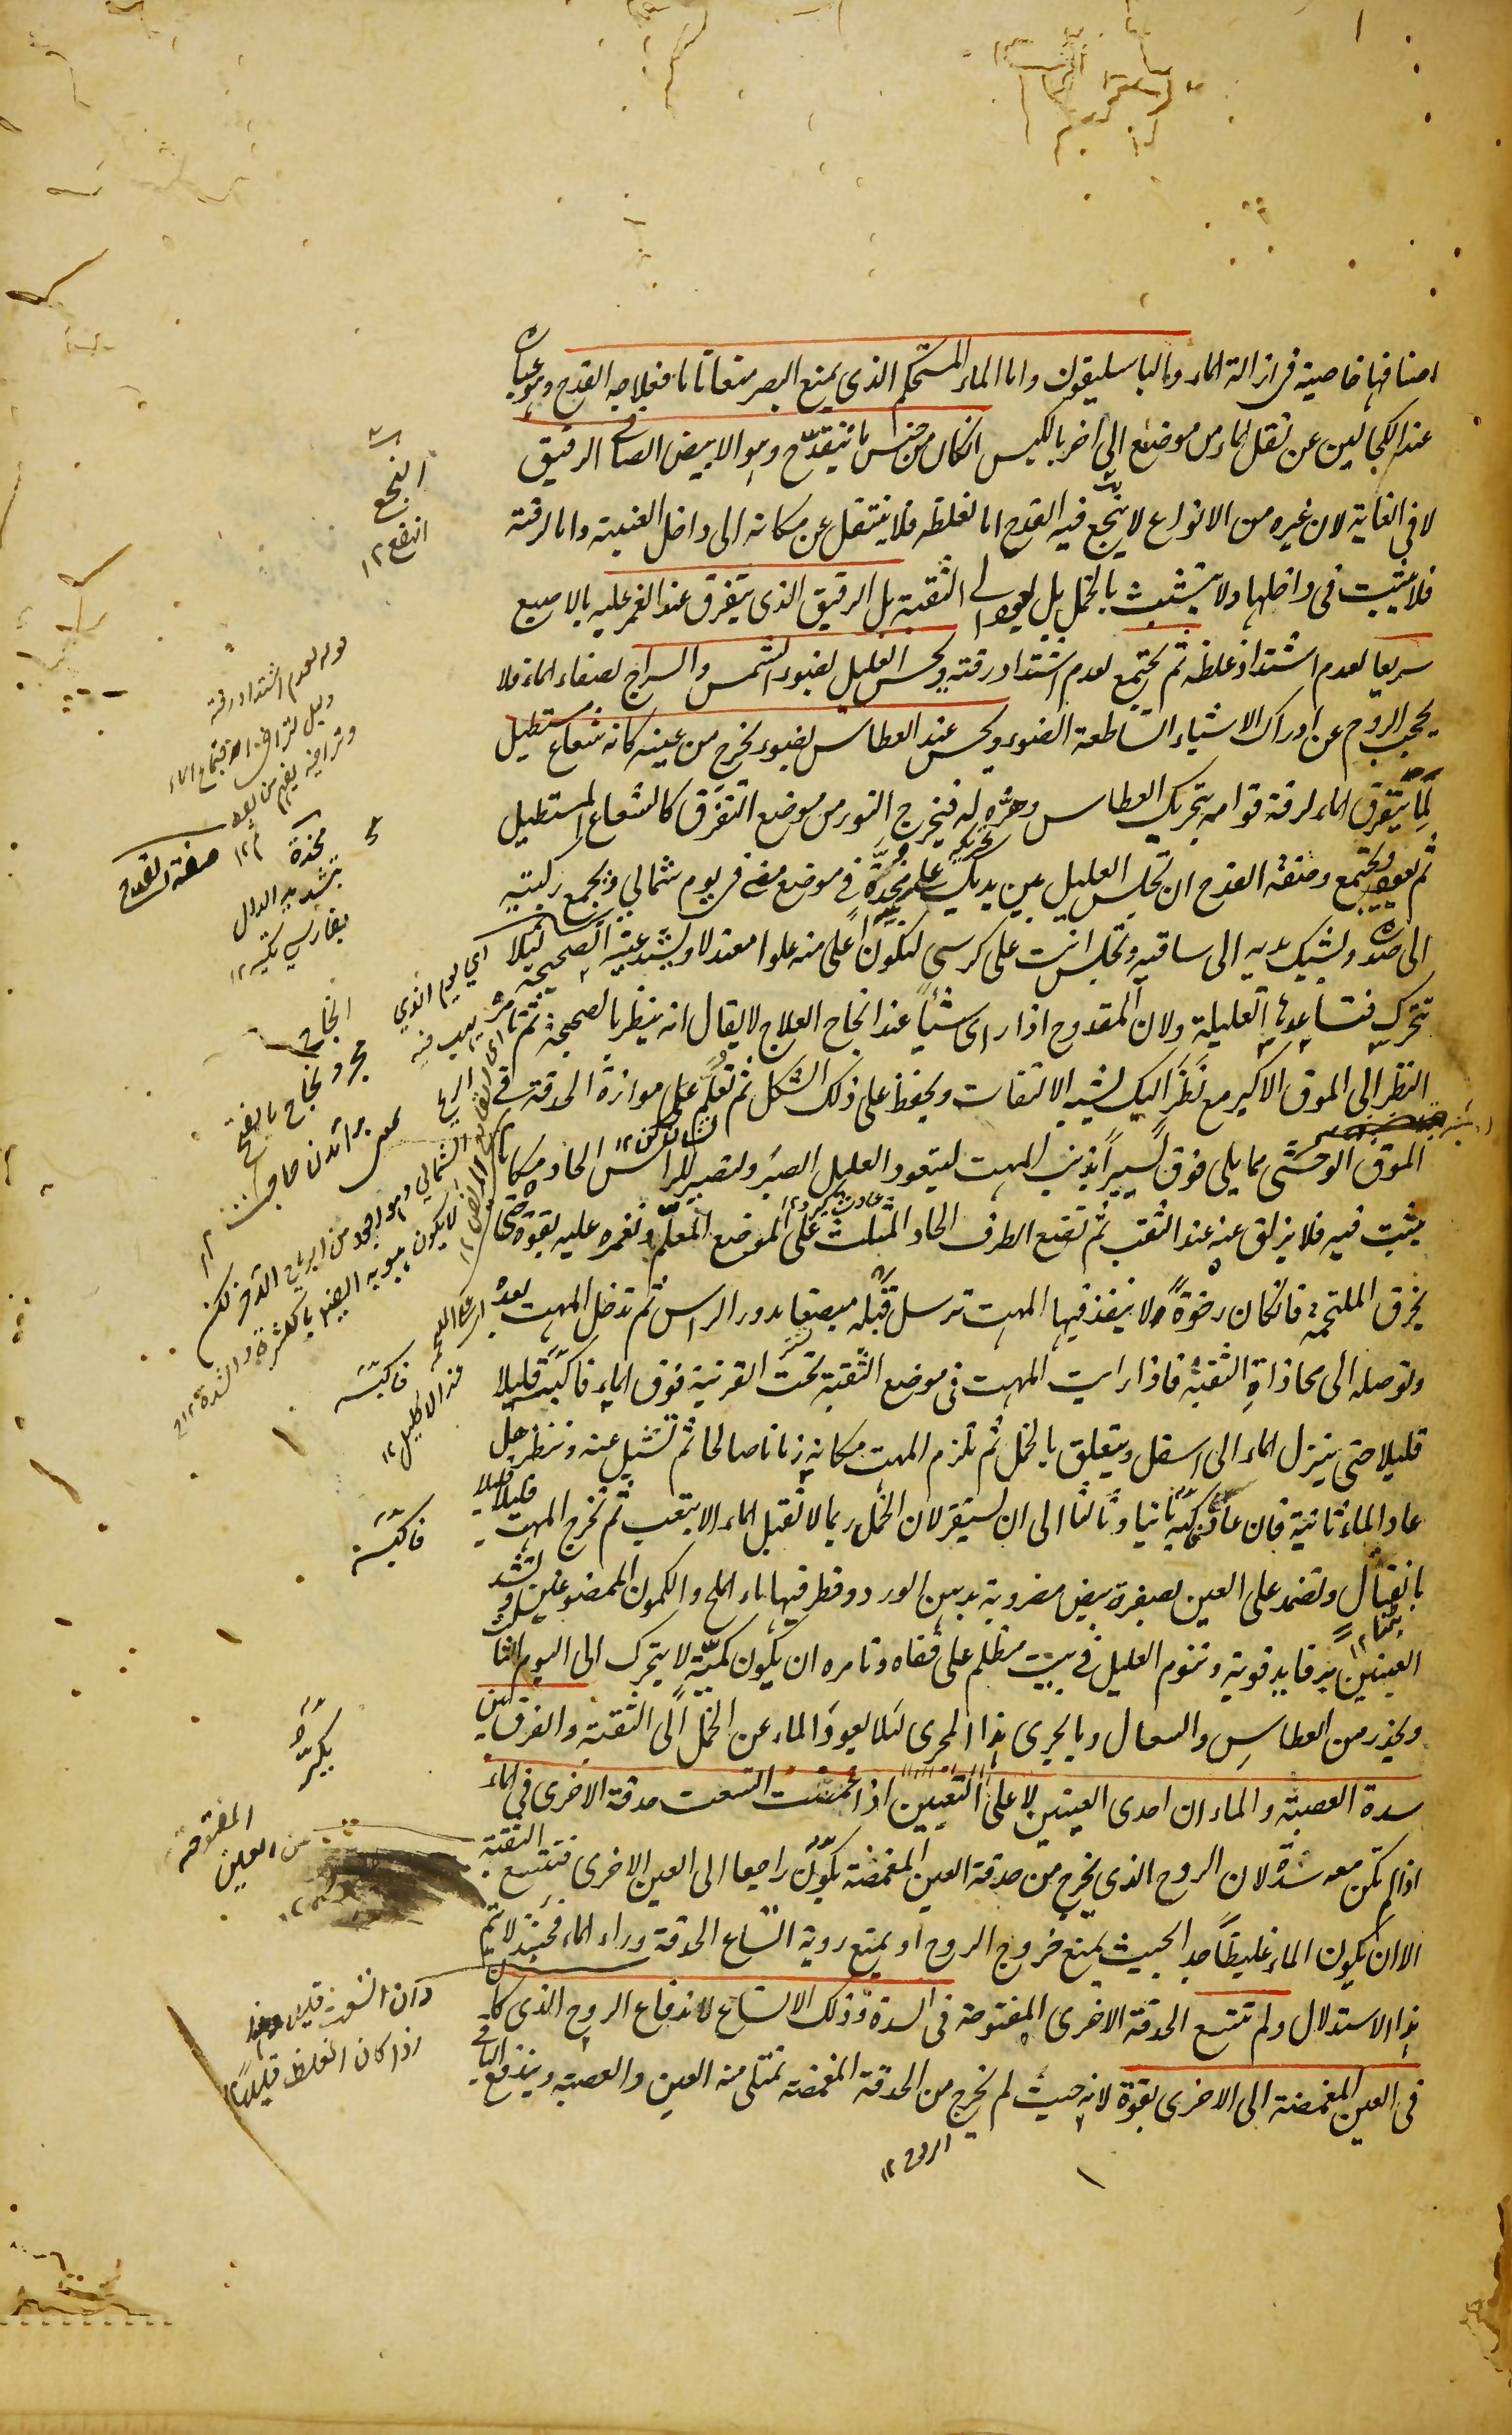 اصنافها خاصية في ازالة الماء وبالباسليقون واما الماء المستحكم الذي يمنع البصر منعا تاما فعلاجه القدح وهو عبارة
عند الكحالين عن نقل الماء من موضع الى اخر بالكبس انكان من جنس ما ينقدح وهو الابيض الصافي الرقيق
لا في الغاية لان غيره من الانواع لا ينجع فيه القدح اما لغلظه فلا ينتقل عن مكانه الى داخل العنبية واما لرقته
فلا يثبت في داخلها ولا يتشبث بالخمل بل يعود الى الثقبة بل الرقيق الذي يتفرق عند الغمز عليه بالاصبع
سريعا لعدم اشتداد غلظه ثم يجتمع لعدم اشتداد رقته ويحس العليل بضوء الشمس والسراج لصفاء الماء فلا
يحجب الروح عن ادراك الاشياء الساطعة الضوء ويحس عند العطاس بضوء يخرج من عينه كانه شعاع مستطيل
لما يتفرق الماء لرقة قوامه بتحريك العطاس وهزه له فيخرج النور من موضع التفرق كالشعاع المستطيل
ثم يعود ويجتمع وصفة القدح ان تجلس العليل بين يديك على مخدة في موضع مضئ في يوم شمالي ويجمع ركبتيه
الى صدره ويشبك يديه الى ساقيه وتجلس انت على كرسي لتكون اعلى منه علوا معتدلا ويشد عينه الصحيحة لئلا
تتحرك فتساعدها العليلة ولان المقدوح اذا راى شيئا عند انجاح العلاج لا يقال انه ينظر بالصحيحة ثم تامره
النظر الى الموق الاكبر مع نظر اليك لشبه الالتفات ويحفظ على ذلك الشكل ثم تعلم على موازاة الحدقة في
الموق الوحشي مما يلي فوق يسيرا بذنب المهت ليتعود العليل الصبر وليصير للراس الحاد مكانا
يثبت فيه فلا يزلق عنه عند الثقب ثم تضع الطرف الحاد المثلث على الموضع المعلم وتغمزه عليه بقوة حتى
يخرق الملتحمة فانكان رخوة ولا ينفذ فيها المهت ترسل قبله مبضعا مدور الراس ثم تدخل المهت بعده
وتوصله الى محاذاة الثقبة فاذا رايت المهت في موضع الثقبة تحت القرنية فوق الماء فاكبسه قليلا
قليلا حتى ينزل الماء الى اسفل ويتعلق بالخمل ثم تلزم المهت مكانه زمانا صالحا ثم تشيل عنه وتنظر هل
عاد الماء ثانية فان عاد فاكبسه ثانيا وثالثا الى ان يستقر لان الخمل ربما لا تقبل الماء الا بتعب ثم تخرج المهت قليلا قليلا
بانفتال وتضمد على العين بصفرة بيض مضروبة بدهن الورد وقطر فيها ماء الملح والكمون الممضوغين وتشد
العينين برفايد قوية وتنوم العليل في بيت مظلم على قفاه وتامره ان يكون كميت لا يتحرك الى اليوم الثالث
ويحذر من العطاس والسعال وما يجرى هذا المجرى لئلا يعود الماء عن الخمل الى الثقبة والفرق بين
سدة العصبة والماء ان احدى العينين لا على التعيين اذا غمضت اتسعت حدقة الاخرى في الماء
اذا لم تكن معه سدة لان الروح الذي يخرج من حدقة العين المغمضة يكون راجعا الى العين الاخرى فتتسع الثقبة
الا ان يكون الماء غليظا جدا بحيث يمنع خروج الروح او يمنع روية اتساع الحدقة وراء الماء فحينئذ لا يتم
هذا الاستدلال ولم تتسع الحدقة الاخرى المفتوحة في السدة وذلك الاتساع لاندفاع الروح الذي كان
في العين المغمضة الى الاخرى بقوة لانه حيث لم يخرج من الحدقة المغمضة تمتلى منه العين والعصبة ويندفع الباقي
الروح ١٢
النجع
النفع ١٢
قوله لعدم اشتداد رقته
دليل
صفة القدح
مخدة
بتشديد الدال
بفارسي تكيه ١٢
اي يوم الذي
يهب فيه
الريح
الشمالي
النجاح
نجاح بالفتح
بر آمدن حاجت ١٢
فاكبسه
فاكبسه
المفتوحة
من العين
وان اتسعت قليلا
اذا كان الغلظ قليلا